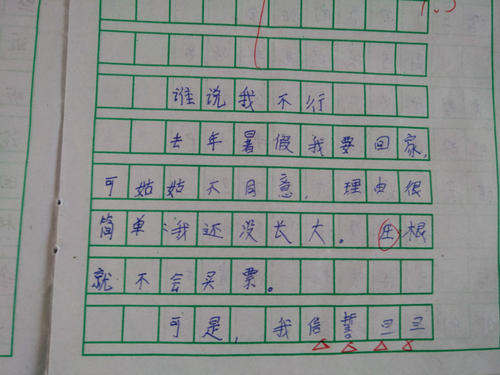 谁说我不行
去年暑假我要回家,
可姑姑不同意,理由很
简单:我还没长大。压根
就不会买票。
可是,我信誓旦旦